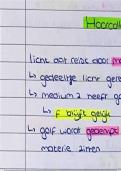 Hoofd
licht dat reist door m
↳ gedeeltelijk licht gere
↳ medium 2 heeft ge
↳ f blijft gelijk
↳ golf wordt gedempt
materie zitten